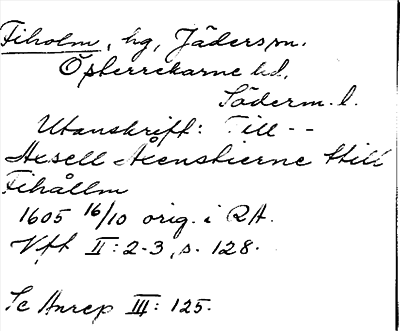 Fiholm, hg, Jäders sn.
Österrekarne hd,
Söderm. l.
Utanskrift: Till --
Axsell Åxenstierne till
Fihållm
1605 16/10 orig. i RA.
Vftt II: 2-3, s. 128.
Se Anrep III: 125.